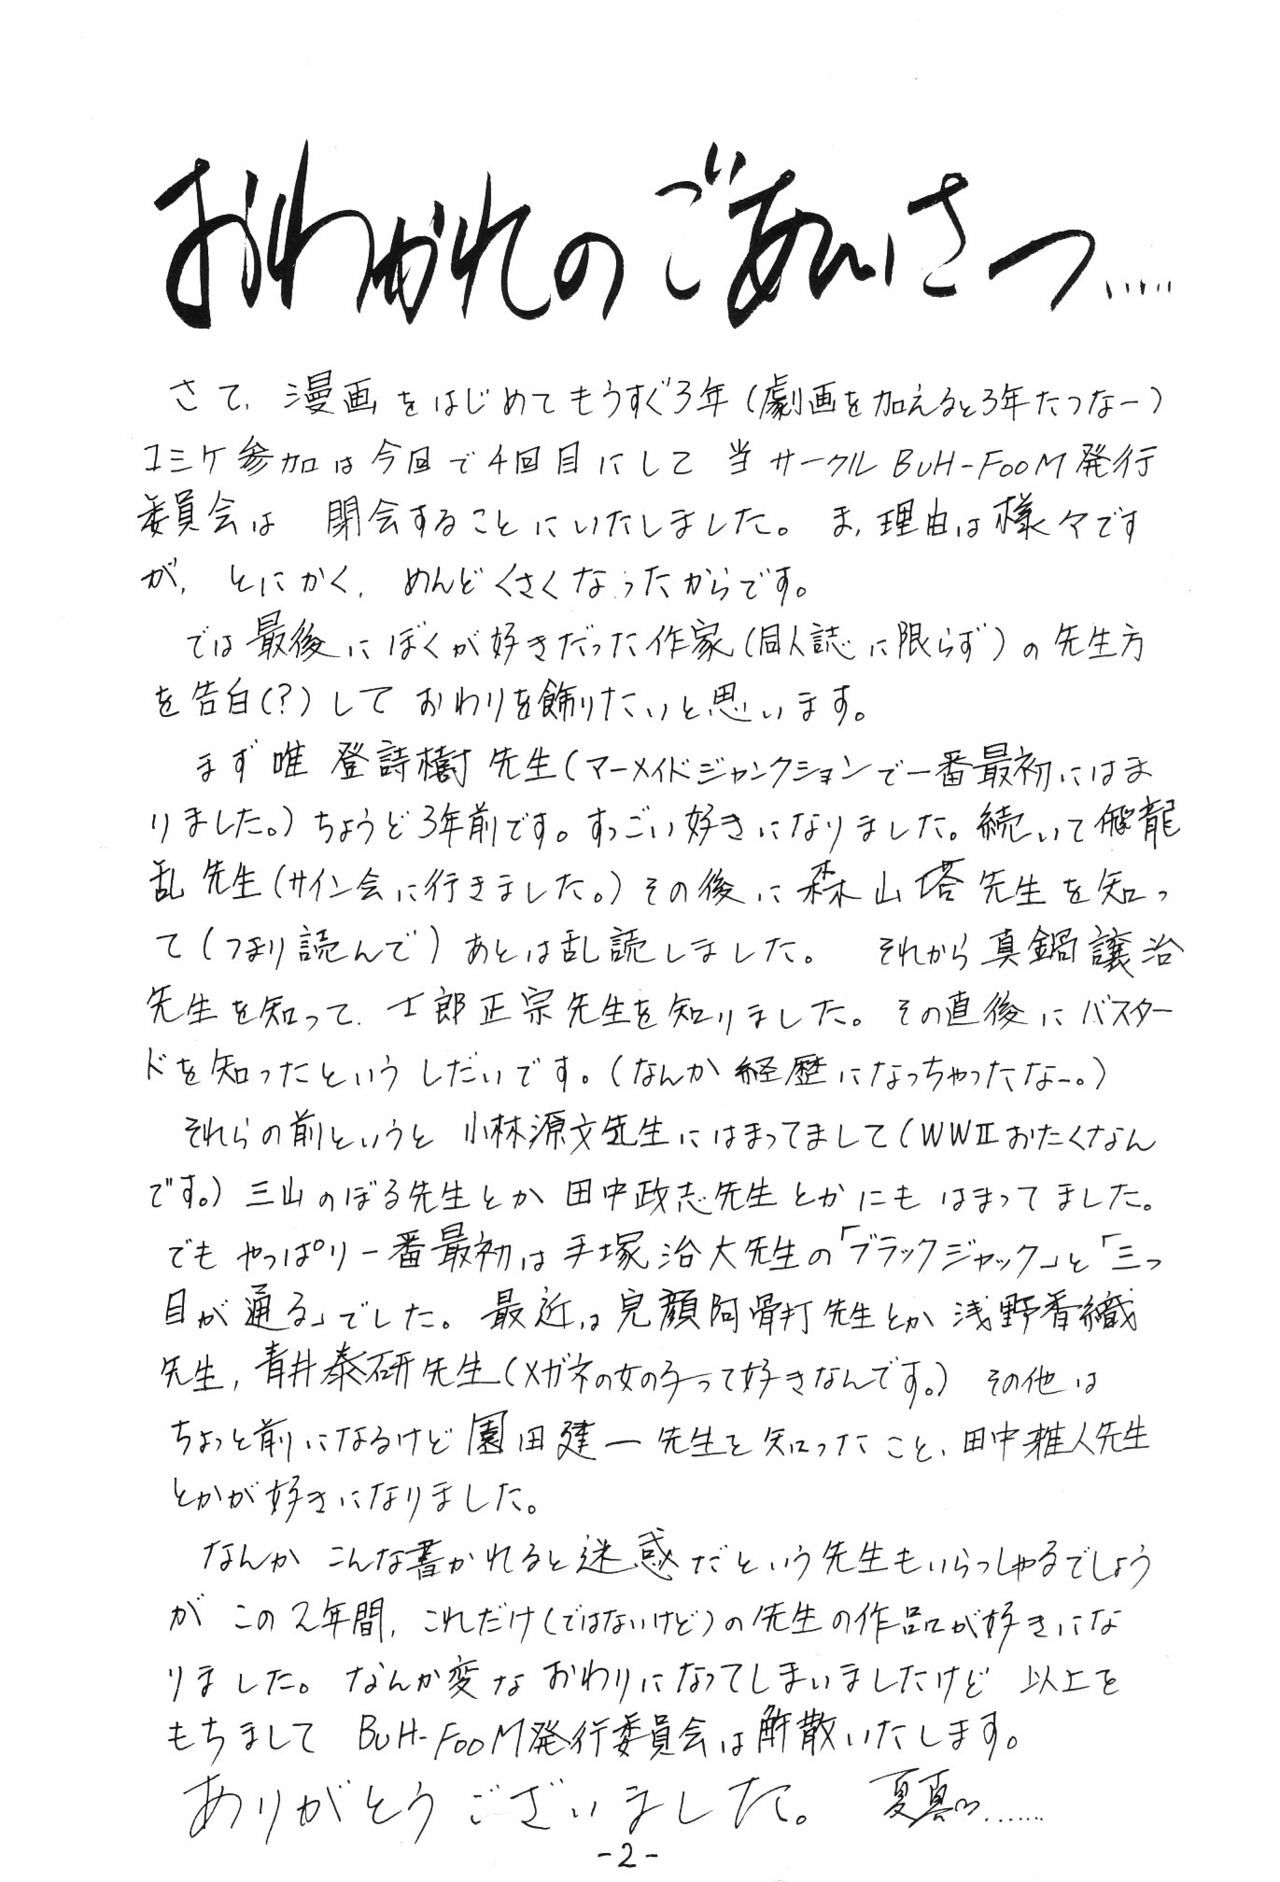 おわかれのごあいさつ.....
さて、漫画をはじめてもうすぐ3年(劇画を加えると3年たつなー)
コミケ参加は今回で4回目にして 当サークルBUH-FOOM発行
委員会は 閉会することにいたしました。ま、理由は様々です
が、とにかく、めんどくさくなったからです。
では最後にぼくが好きだった作家(同人誌に限らず)の先生方
を告白(?)して おわりを飾りたいと思います。
まず唯 登詩樹先生(マーメイドジャンクションで一番最初にはま
りました。)ちょうど3年前です。すっごい好きになりました。続いて飛龍
乱先生(サイン会に行きました。)その後に森山塔先生を知っ
て(つまり読んで)あとは乱読しました。 それから真鍋譲治
先生を知って、士郎正宗先生を知りました。その直後にバスター
ドを知ったというしだいです。(なんか経歴になっちゃったなー。)
それらの前というと 小林源文先生にはまってまして(WWⅡおたくなん
です。)三山のぼる先生とか田中政志先生とかにもはまってました。
でもやっぱり一番最初は手塚治大先生の「ブラックジャック」と「三つ
目が通る」でした。最近は児顔阿骨打先生とか浅野香織
先生,青井泰研先生(メガネの女の子って好きなんです。)その他は
ちょっと前になるけど園田建一先生を知ったこと、田中雅人先生
とかが好きになりました。
なんか こんな書かれると迷惑だという先生もいらっしゃるでしょう
が この2年間,これだけ(ではないけど)の先生の作品が好きにな
りました。なんか変なおわりになってしまいましたけど 以上を
もちまして BUH-FOOM発行委員会は解散いたします。
ありがとうございました。 夏真っ......
-2-